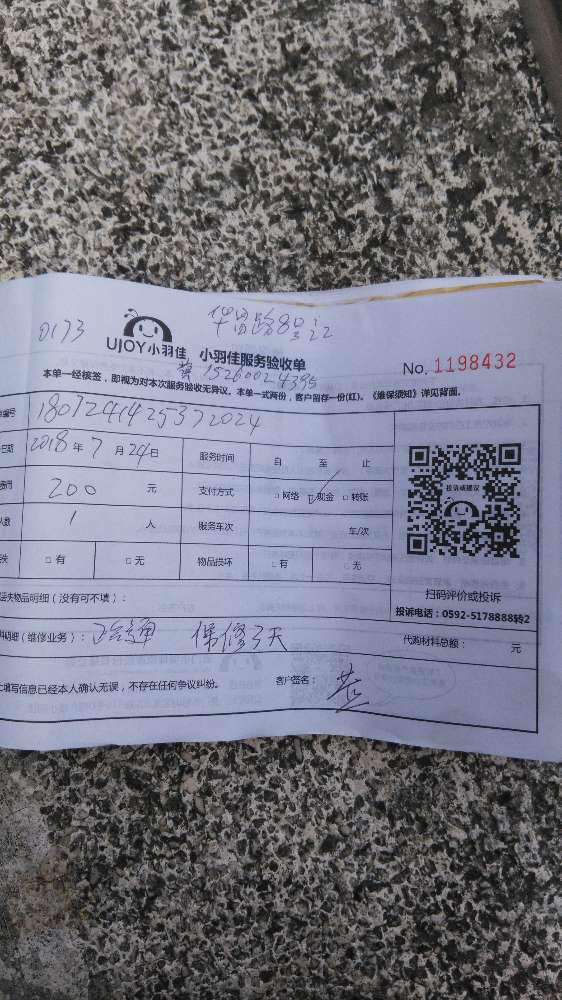 0173
路8号
UJOY小羽佳 小羽佳服务验收单
No. 1198432
本单一经核签，即视为对本次服务验收无异议。本单一式两份，客户留存一份(红)。《维保须知》详见背面。
编号 1807291425372024
日期 2018 年 7 月 24 日 服务时间 自 至 止
费用 200 元 支付方式 □网络 ☑现金 □转账
人数 1 人 服务车次 车/次
□有 □无 物品损坏 □有 □无
投诉或建议
扫码评价或投诉
投诉电话：0592-5178888转2
物品明细（没有可不填）：
明细（维修业务）： 保修3天 代购材料总额： 元
填写信息已经本人确认无误，不存在任何争议纠纷。 客户签名：